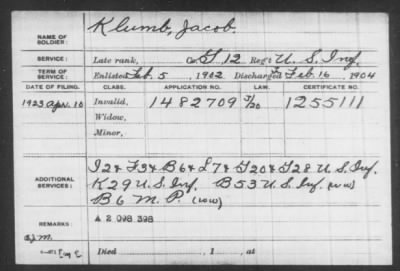 NAME OF SOLDIER: Klumb, Jacob.
SERVICE: Late rank, Co. G, 12 Reg't U. S. Inf.
TERM OF SERVICE: Enlisted Feb. 5, 1902 Discharged Feb. 16, 1904
DATE OF FILING. CLASS. APPLICATION NO. LAW. CERTIFICATE NO.
1923 Apr. 10 Invalid, 1482709 1255111
Widow,
Minor,
ADDITIONAL SERVICES: I2 & F3 & B6 & L7 & G20 & G28 U.S. Inf.
K29 U.S. Inf. B53 U.S. Inf. (WW)
B6 M. P. (WW)
REMARKS: A 2 098 398
Died , 1 , at